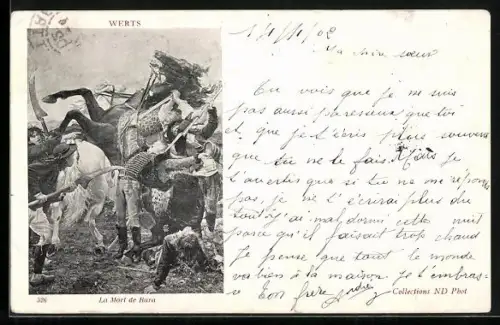 WERTS
Ma chère sœur
Tu vois que je ne suis
pas aussi paresseux que toi
et que je t'écris plus souvent
que tu ne le fais. Mais je
t'avertis que si tu ne me réponds
pas, je ne t'écrirai plus du
tout. J'ai mal dormi cette nuit
parce qu'il faisait trop chaud
Je pense que tout le monde
va bien à la maison je t'embras-
se Ton frère
526
La Mort de Bara
Collections ND Phot